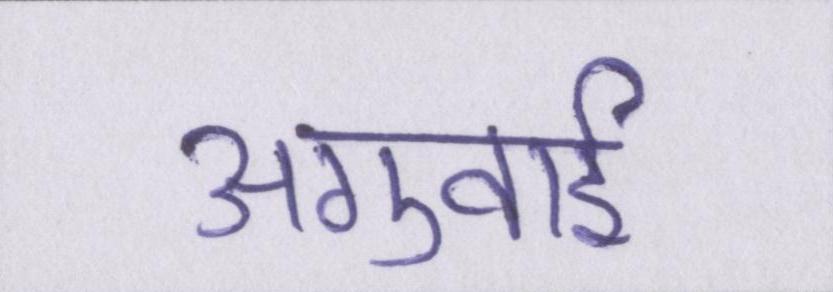 अगुवाई